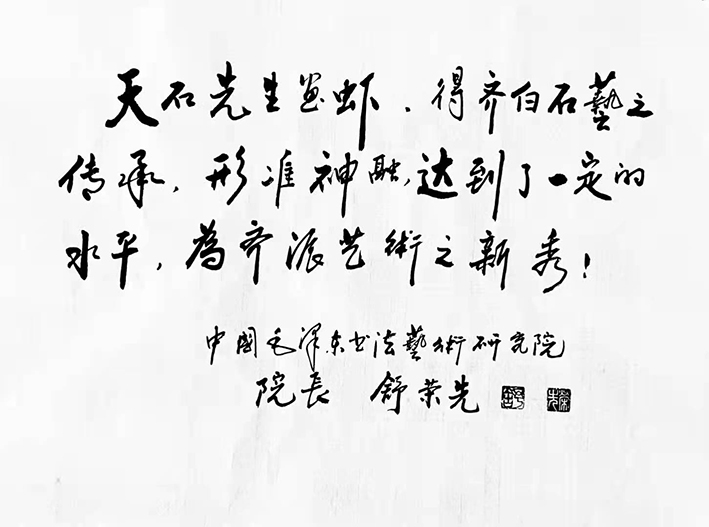 天石先生画虾．得齐白石藝之
传承，形準神融，达到了一定的
水平，為齐派艺術之新秀！
中國毛泽东书法藝術研究院
院長 舒荣先